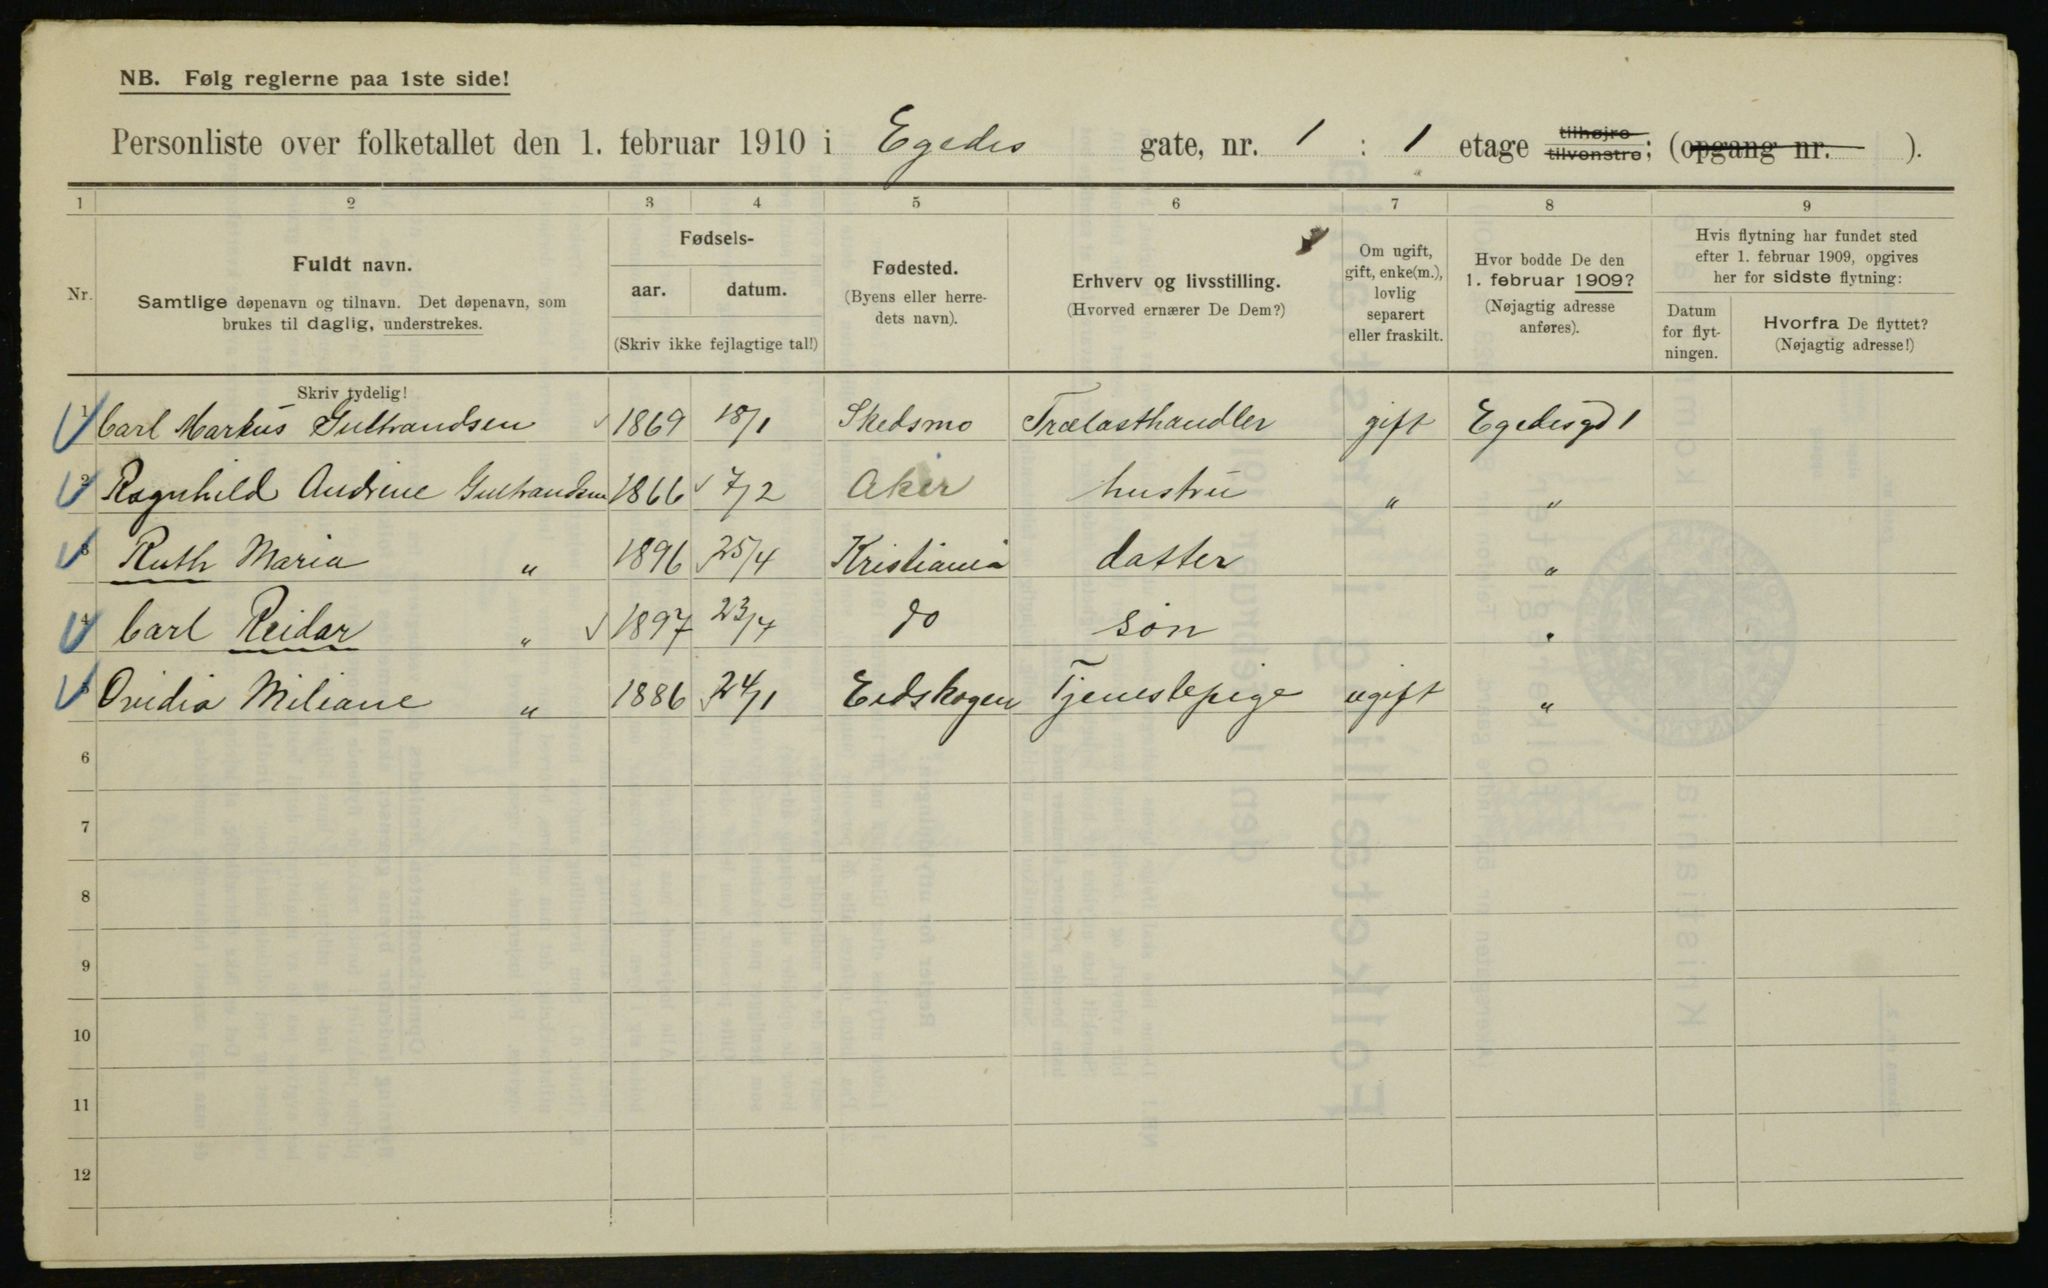 NB. Følg reglerne paa 1ste side!
Personliste over folketallet den 1. februar 1910 i Egedes gate, nr. 1 : 1 etage tilhøjre tilvenstre; (opgang nr. ).
1 2 3 4 5 6 7 8 9
Nr.
Fuldt navn.
Samtlige døpenavn og tilnavn. Det døpenavn, som
brukes til daglig, understrekes.
Skriv tydelig!
Fødsels-
aar. datum.
(Skriv ikke fejlagtige tal!)
Fødested.
(Byens eller herre-
dets navn).
Erhverv og livsstilling.
(Hvorved ernærer De Dem?)
Om ugift,
gift, enke(m.),
lovlig
separert
eller fraskilt.
Hvor bodde De den
1. februar 1909?
(Nøjagtig adresse
anføres).
Hvis flytning har fundet sted
efter 1. februar 1909, opgives
her for sidste flytning:
Datum
for flyt-
ningen.
Hvorfra De flyttet?
(Nøjagtig adresse!)
1 Carl Markus Gulbrandsen 1869 18/1 Skedsmo Trælasthandler gift Egedesgd 1
2 Ragnhild Andrine Gulbrandsen 1866 7/2 Aker hustru " "
3 Ruth Maria " 1896 25/4 Kristiania datter "
4 Carl Reidar " 1897 23/4 do søn "
5 Ovidia Miliane " 1886 24/1 Eidskogen Tjenestepige ugift "
6
7
8
9
10
11
12